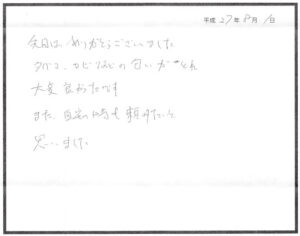 平成 27年 8月 1日
今日は ありがとうございました
タバコ、カビなどの 匂いが とれ
大変 良かったです
また、自宅の時も 頼みたいと
思いました